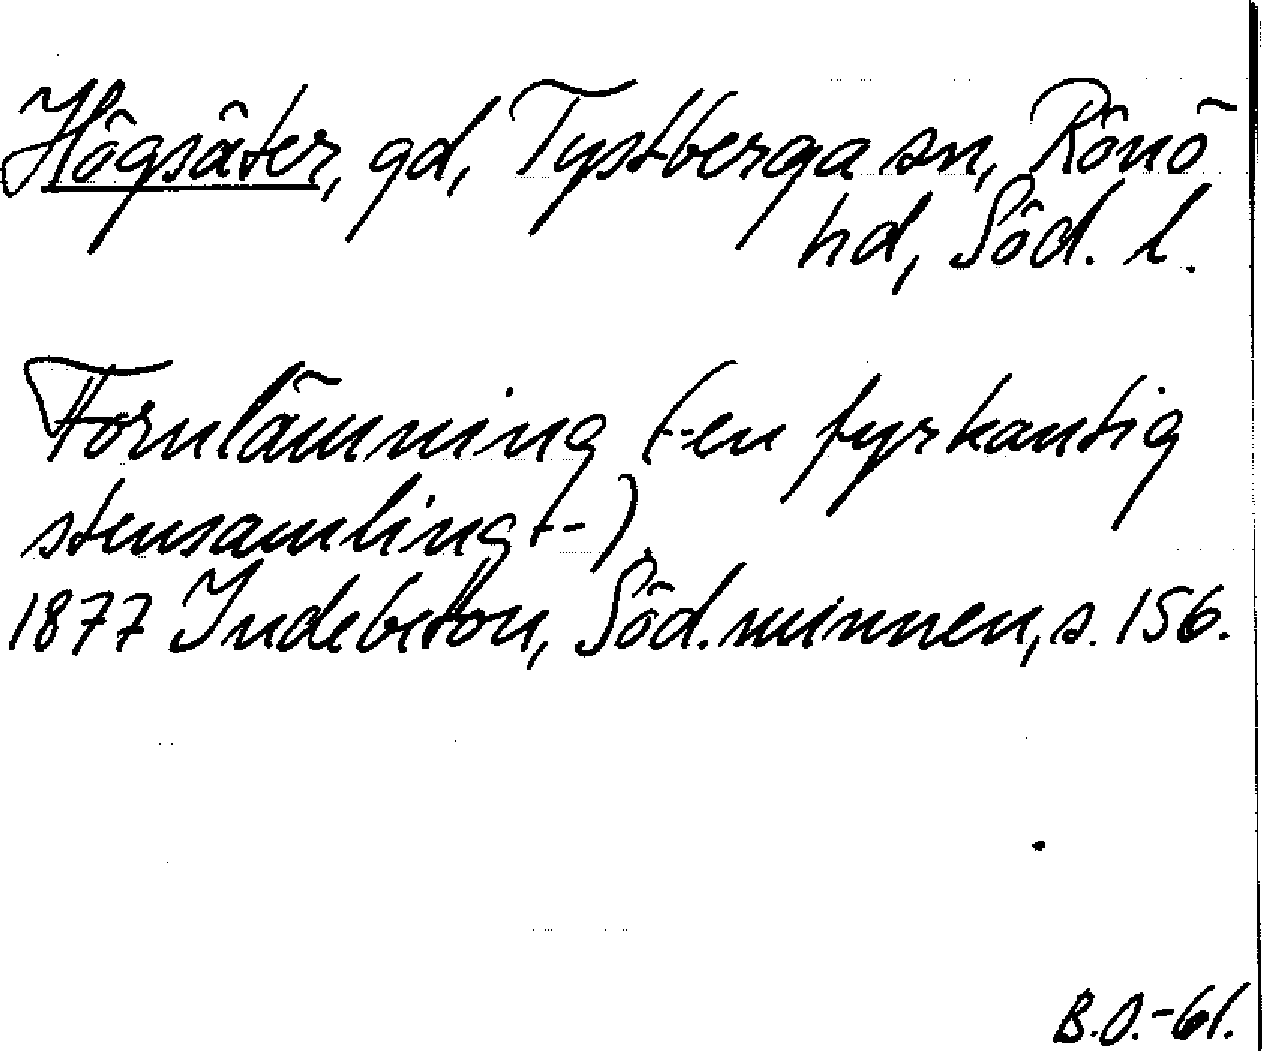 Högsäter, gd, Tystberga sn, Rönö
hd, Söd. l.
Fornlämning (-en fyrkantig
stensamling+-)
1877 Indebetou, Söd. minnen, s. 156.
B.O.-61.